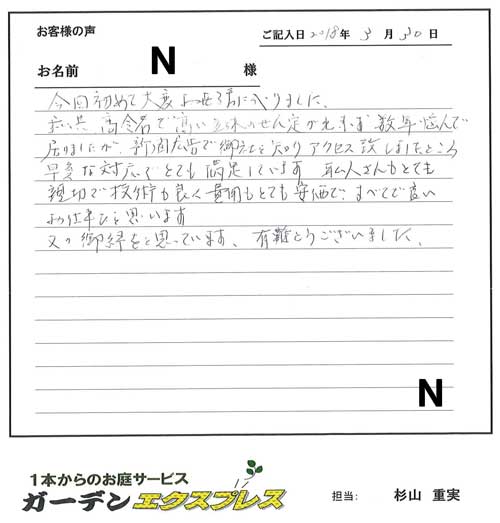 お客様の声
ご記入日 2018年 3月 30日
お名前 N 様
今回初めて大変お世話に成りました、
私共 高令者で高い立木のせん定が出来ず 数年悩んで
居りましたが、新聞広告で御社を知り アクセス致しましたところ
早急な対応でとても満足しています 職人さんもとても
親切で技術も良く 費用もとても安価で、すべてで良い
お仕事ひと思います
又の御縁をと思っています、有難とうございました、
N
1本からのお庭サービス
ガーデンエクスプレス
担当: 杉山 重実